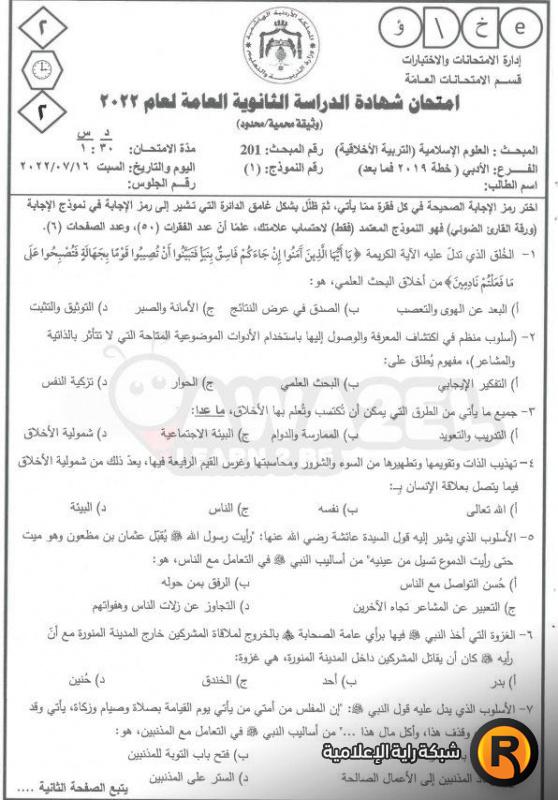 e خ ا ؤ
٢
٢
المملكة الأردنية الهاشمية
وزارة التربية والتعليم
إدارة الامتحانات والاختبارات
قسم الامتحانات العامة
امتحان شهادة الدراسة الثانوية العامة لعام ٢٠٢٢
(وثيقة محمية/محدود)
د س
المبحث: العلوم الإسلامية (التربية الأخلاقية) رقم المبحث: 201 مدة الامتحان: ٣٠ : ١
الفرع: الأدبي (خطة ٢٠١٩ فما بعد) رقم النموذج: (١) اليوم والتاريخ: السبت ٢٠٢٢/٠٧/١٦
اسم الطالب: رقم الجلوس:
اختر رمز الإجابة الصحيحة في كل فقرة مما يأتي، ثم ظلّل بشكل غامق الدائرة التي تشير إلى رمز الإجابة في نموذج الإجابة
(ورقة القارئ الضوئي) فهو النموذج المعتمد (فقط) لاحتساب علامتك، علمًا أنّ عدد الفقرات (٥٠)، وعدد الصفحات (٦).
١- الخُلق الذي تدلّ عليه الآية الكريمة ﴿يَا أَيُّهَا الَّذِينَ آمَنُوا إِنْ جَاءَكُمْ فَاسِقٌ بِنَبَإٍ فَتَبَيَّنُوا أَنْ تُصِيبُوا قَوْمًا بِجَهَالَةٍ فَتُصْبِحُوا عَلَى
مَا فَعَلْتُمْ نَادِمِينَ﴾ من أخلاق البحث العلمي، هو:
أ) البعد عن الهوى والتعصب ب) الصدق في عرض النتائج ج) الأمانة والصبر د) التوثيق والتثبت
٢- (أسلوب منظم في اكتشاف المعرفة والوصول إليها باستخدام الأدوات الموضوعية المتاحة التي لا تتأثر بالذاتية
والمشاعر)، مفهوم يُطلق على:
أ) التفكير الإيجابي ب) البحث العلمي ج) الحوار د) تزكية النفس
٣- جميع ما يأتي من الطرق التي يمكن أن تُكتسب وتُعلم بها الأخلاق، ما عدا:
أ) التدريب والتعويد ب) الممارسة والدوام ج) البيئة الاجتماعية د) شمولية الأخلاق
٤- تهذيب الذات وتقويمها وتطهيرها من السوء والشرور ومحاسبتها وغرس القيم الرفيعة فيها، يعدّ ذلك من شمولية الأخلاق
فيما يتصل بعلاقة الإنسان بـ:
أ) الله تعالى ب) نفسه ج) الناس د) البيئة
٥- الأسلوب الذي يشير إليه قول السيدة عائشة رضي الله عنها: "رأيت رسول الله ﷺ يُقبّل عثمان بن مظعون وهو ميت
حتى رأيت الدموع تسيل من عينيه" من أساليب النبي ﷺ في التعامل مع الناس، هو:
أ) حُسن التواصل مع الناس ب) الرفق بمن حوله
ج) التعبير عن المشاعر تجاه الآخرين د) التجاوز عن زلات الناس وهفواتهم
٦- الغزوة التي أخذ النبي ﷺ فيها برأي عامة الصحابة بالخروج لملاقاة المشركين خارج المدينة المنورة مع أنّ
رأيه ﷺ كان أن يقاتل المشركين داخل المدينة المنورة، هي غزوة:
أ) بدر ب) أحد ج) الخندق د) حُنين
٧- الأسلوب الذي يدل عليه قول النبي ﷺ: "إن المفلس من أمتي من يأتي يوم القيامة بصلاة وصيام وزكاة، يأتي وقد
وقذف هذا، وأكل مال هذا ..." من أساليب النبي ﷺ في التعامل مع المذنبين، هو:
ب) فتح باب التوبة للمذنبين
المذنبين إلى الأعمال الصالحة د) الستر على المذنبين
يتبع الصفحة الثانية ....
AWA2EL
LEARN 2 BE
شبكة راية الإعلامية
R